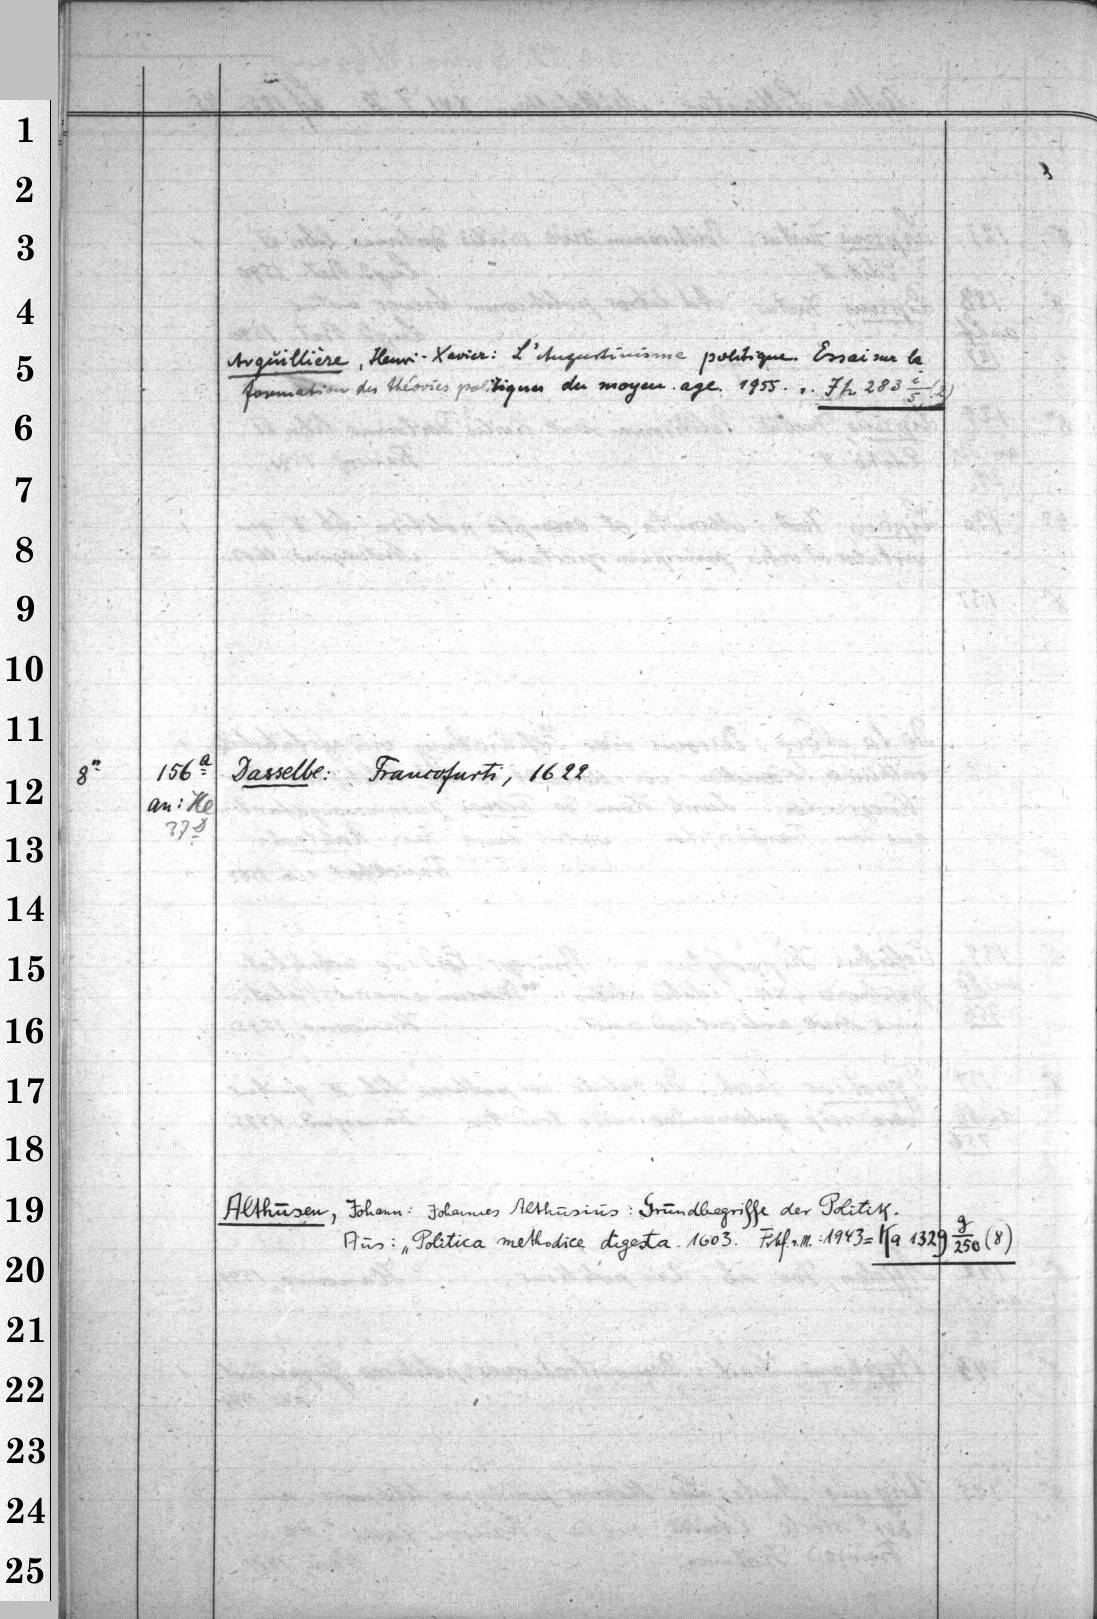 1
2
3
4
Arquillière, Henri-Xavier: L'Augustinisme politique. Essai sur la
5
formation des théories politiques du moyen age. 1955. Fh 283 i/5 (2)
6
7
8
9
10
11
8° 156a Dasselbe: Francofurti, 1622
12
an: He
37
13
14
15
16
17
18
19
Althusen, Johann: Johannes Althusius: Grundbegriffe der Politik.
Aus: „Politica methodice digesta. 1603. Frkf. a. M.: 1943= Ka 1329 g/250 (8)
20
21
22
23
24
25